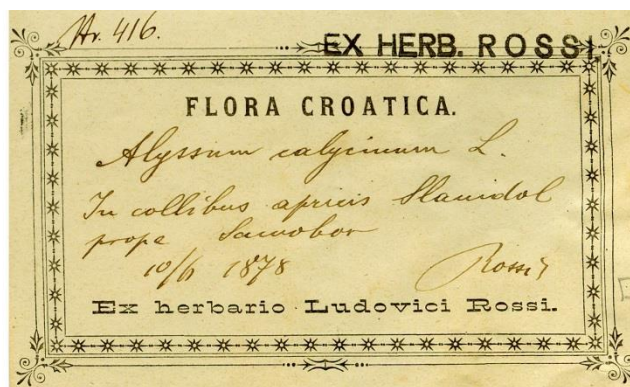 Nr. 416.
EX HERB. ROSSI.
FLORA CROATICA.
Alyssum calycinum L.
In collibus apricis Slanidol
prope Samobor
10/6 1878 Rossi
Ex herbario Ludovici Rossi.